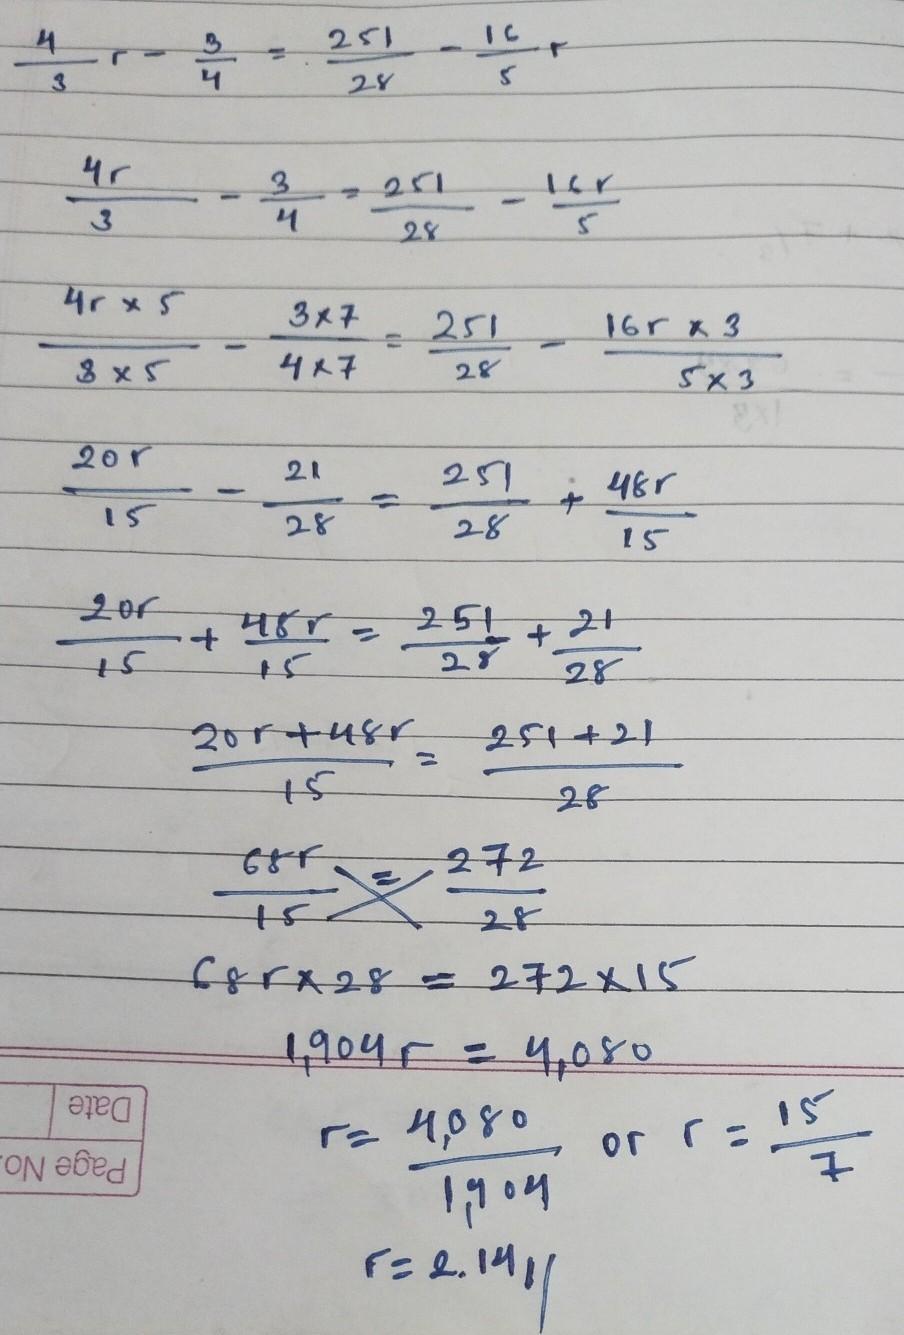 4/3 r - 3/4 = 251/28 - 16/5 r
4r/3 - 3/4 = 251/28 - 16r/5
4r × 5/3 × 5 - 3×7/4×7 = 251/28 - 16r × 3/5×3
20r/15 - 21/28 = 251/28 + 48r/15
20r/15 + 48r/15 = 251/28 + 21/28
20r+48r/15 = 251+21/28
68r/15 = 272/28
68r×28 = 272×15
1,904r = 4,080
r= 4,080/1,904 or r = 15/7
r= 2.14//
Date
Page No.